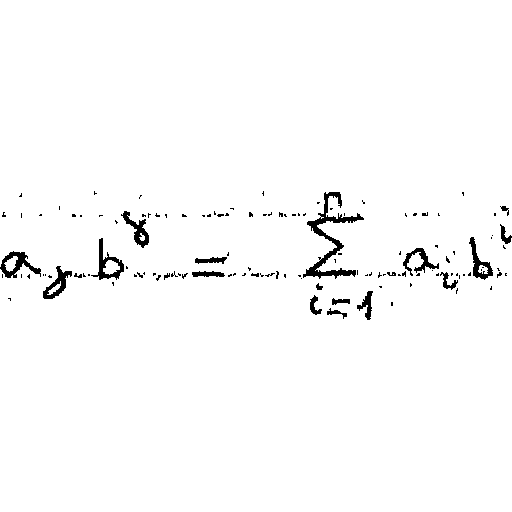 a_γ b^γ = \sum_{i=1}^{n} a_i b^i